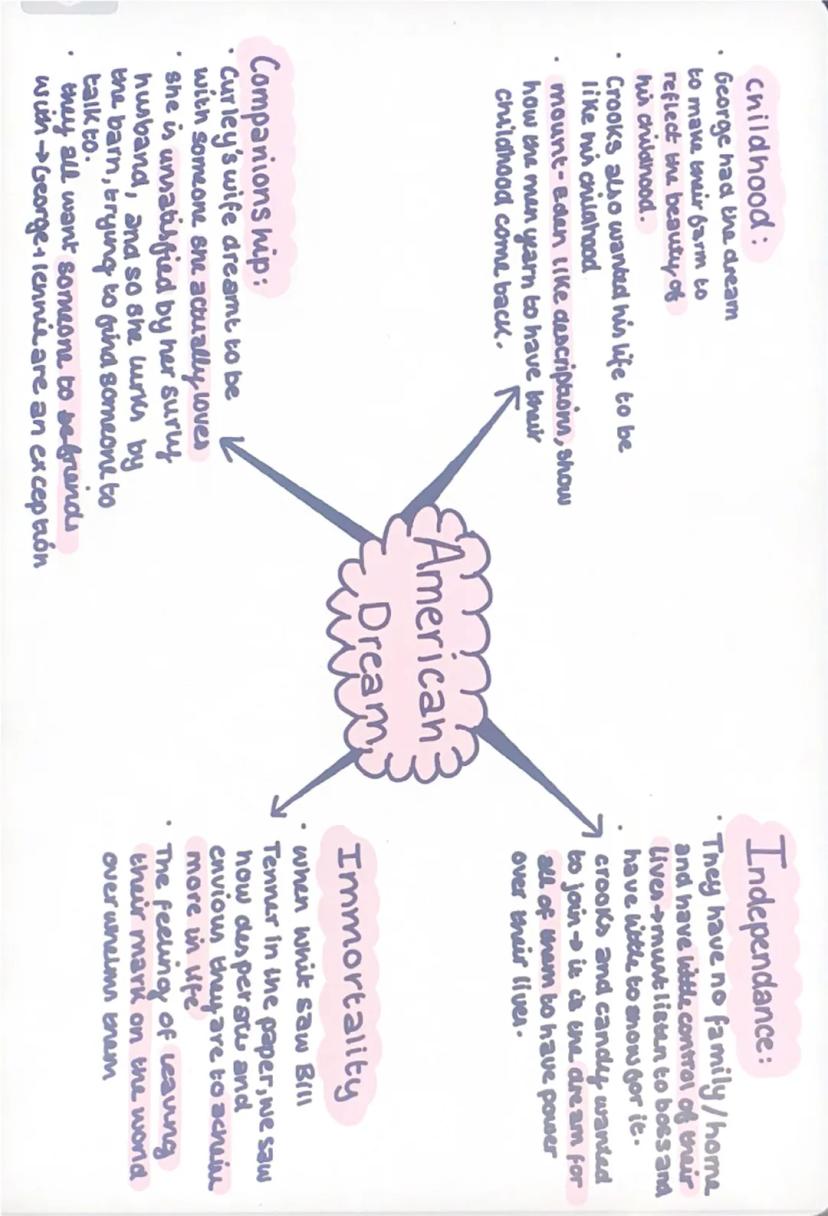 Childhood:
· George had the dream
to make their farm to
reflect the beauty of
his childhood.
· Crooks also wanted his life to be
like his childhood
· mount-Eden like descriptions, show
how the men yarn to have their
childhood come back.
Independance:
· They have no family/home
and have little control of their
lives→must listen to boss and
have little to show for it.
· crooks and candy wanted
to join→ it is the dream for
all of them to have power
over their lives.
American
Dream
Companionship:
· Curley's wife dreamt to be
with someone she actually loves
· she is unsatisfied by her surly
husband, and so she lurks by
the barn, trying to find someone to
talk to.
· they all want someone to be friends
with→George + lennie are an exception
Immortality
· when whit saw Bill
Tenner in the paper, we saw
how desperate and
envious they are to acheive
more in life
· The feeling of leaving
their mark on the world
overwhelms them